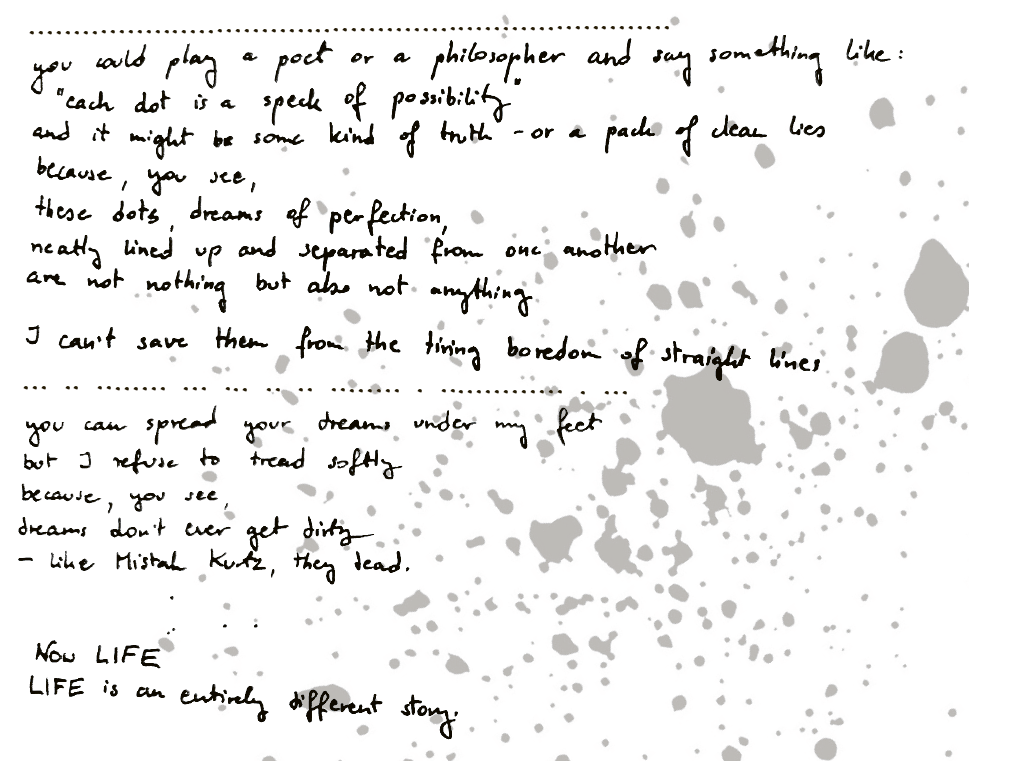 ................................................................................
you could play a poet or a philosopher and say something like:
"each dot is a speck of possibility"
and it might be some kind of truth - or a pack of clean lies
because, you see,
these dots, dreams of perfection,
neatly lined up and separated from one another
are not nothing but also not anything
I can't save them from the tiring boredom of straight lines
... .. ....... ... ... .. .. ........ . ............. . ...
you can spread your dreams under my feet
but I refuse to tread softly
because, you see,
dreams don't ever get dirty
- like Mistah Kurtz, they dead.
.
. . .
Now LIFE
LIFE is an entirely different story.